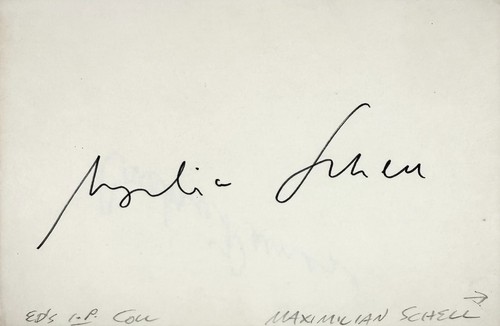 Schell
ED'S I.P. COLL MAXIMILIAN SCHELL →